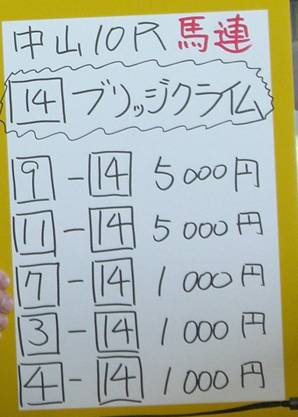 中山10R 馬連
14 ブリッジクライム
9 - 14 5000円
11 - 14 5000円
7 - 14 1000円
3 - 14 1000円
4 - 14 1000円